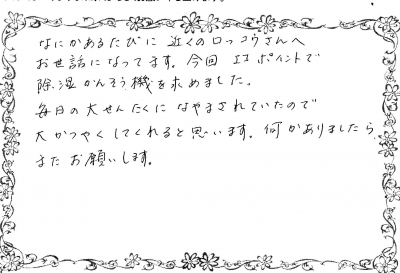 なにかあるたびに 近くのロッコウさんへ
お世話になってます。今回 エコポイントで
除湿かんそう機を求めました。
毎日の大せんたくに なやまされていたので
大かつやくしてくれると思います。何かありましたら
またお願いします。